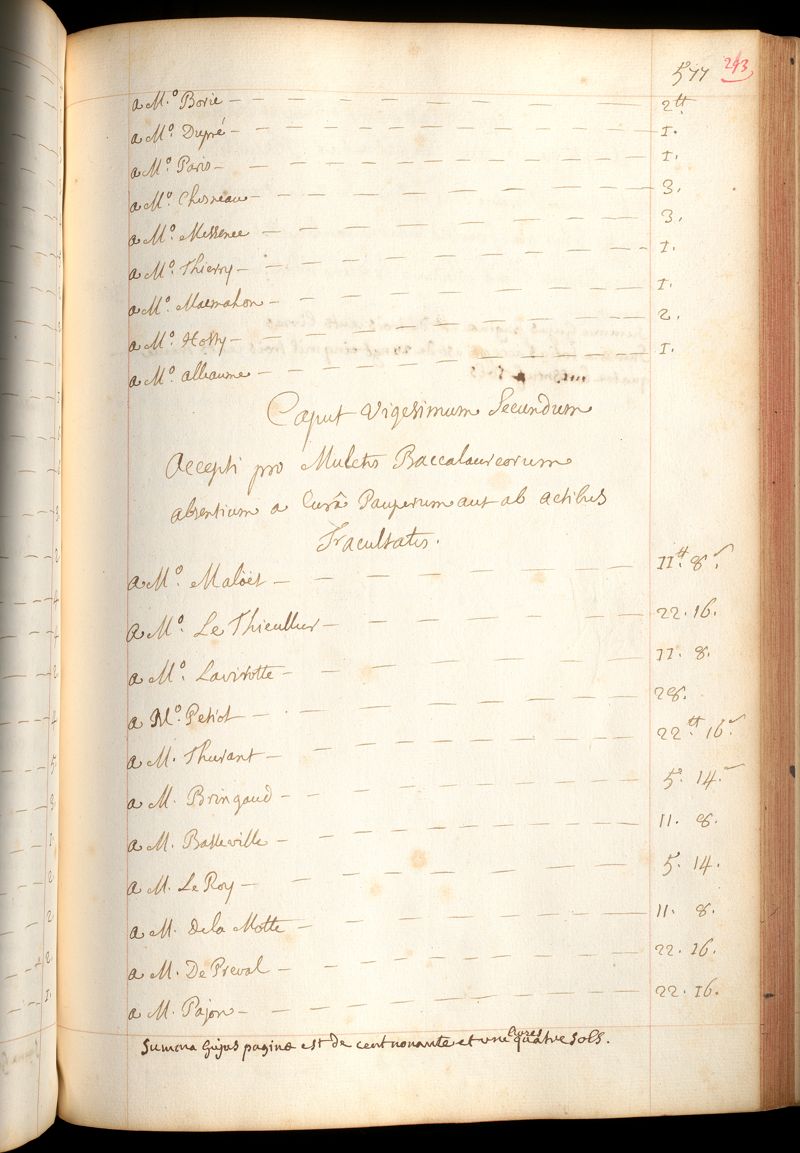 577 293
a M.o Borie 2tt
a Mo. Dupré 1.
a Mo. Paris 1.
a Mo. Chesneau 3.
a Mo. Messence 3.
a Mo. Thierry 1.
a Mo. Macmahon 1.
a Mo. Hosty 2.
a Mo. alleaume 1.
Caput Vigesimum Secundum
Accepti pro Mulctis Baccalaureorum
absentium a Curâ Pauperum aut ab actibus
Facultatis.
a Mo. Maloët 11tt. 8s.
a Mo. Le Thieullier 22. 16.
a Mo. Lavirotte 11. 8.
a Mo. Petiot 28.
a M. Thurant 22tt. 16s.
a M. Bringaud 5. 14
a M. Basseville 11. 8.
a M. Le Roy 5. 14.
a M. de la Motte 11. 8.
a M. De Preval 22. 16.
a M. Pajon 22. 16.
Summa hujus paginæ est de cent nonante et une livres quatre sols.